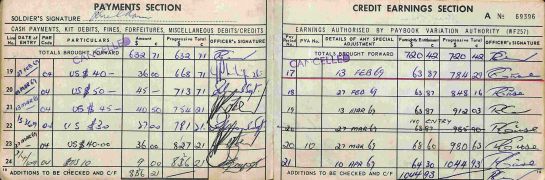 PAYMENTS SECTION
SOLDIER'S SIGNATURE
CASH PAYMENTS, KIT DEBITS, FINES, FORFEITURES, MISCELLANEOUS DEBITS/CREDITS
Line No. DATE OF ENTRY PAR Progressive Total OFFICER'S SIGNATURE
TOTALS BROUGHT FORWARD 632 71 632 71
CANCELLED
19 04 US $ 40 - 36 00 668 71
20 04 US $ 50 - 45 - 713 71
21 04 US $ 45 - 40 50 754 21
22 04 US $ 30 27 00 781 21
23 04 US $ 40-00 36 00 827 21
24 04 10 9 00 836 21
ADDITIONS TO BE CHECKED AND C/F 836 21
CREDIT EARNINGS SECTION
A No 69396
EARNINGS AUTHORISED BY PAYBOOK VARIATION AUTHORITY (RF257)
PVA No. DETAILS OF ANY SPECIAL ADJUSTMENT Progressive Total OFFICER'S SIGNATURE
TOTALS BROUGHT FORWARD 720 42 720 42
CANCELLED
17 13 FEB 69 63 87 784 29
18 27 FEB 69 63 87 848 16
19 13 MAR 69 63 87 912 03
NO ENTRY
20 27 MAR 69 63 87
20 10 27 MAR 69 68 60 980 63
21 10 APR 69 64 30 1044 93
ADDITIONS TO BE CHECKED AND C/F 1044 93